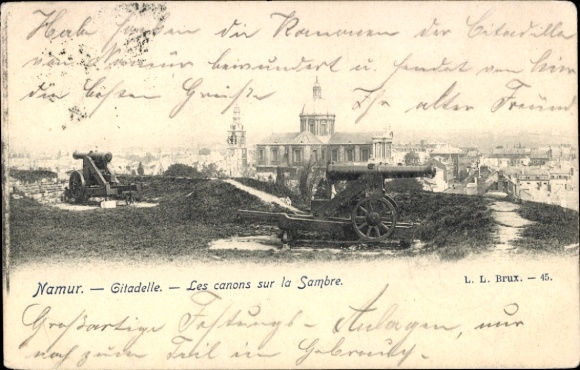 Habe soeben die Kanonen der Citadelle
von Namur bewundert u. sendet von hier
die besten Grüsse Ihr alter Freund
Namur. — Citadelle. — Les canons sur la Sambre.
L. L. Brux. — 45.
Großartige Festungs-Anlagen, nur
noch zum Teil in Gebrauch.